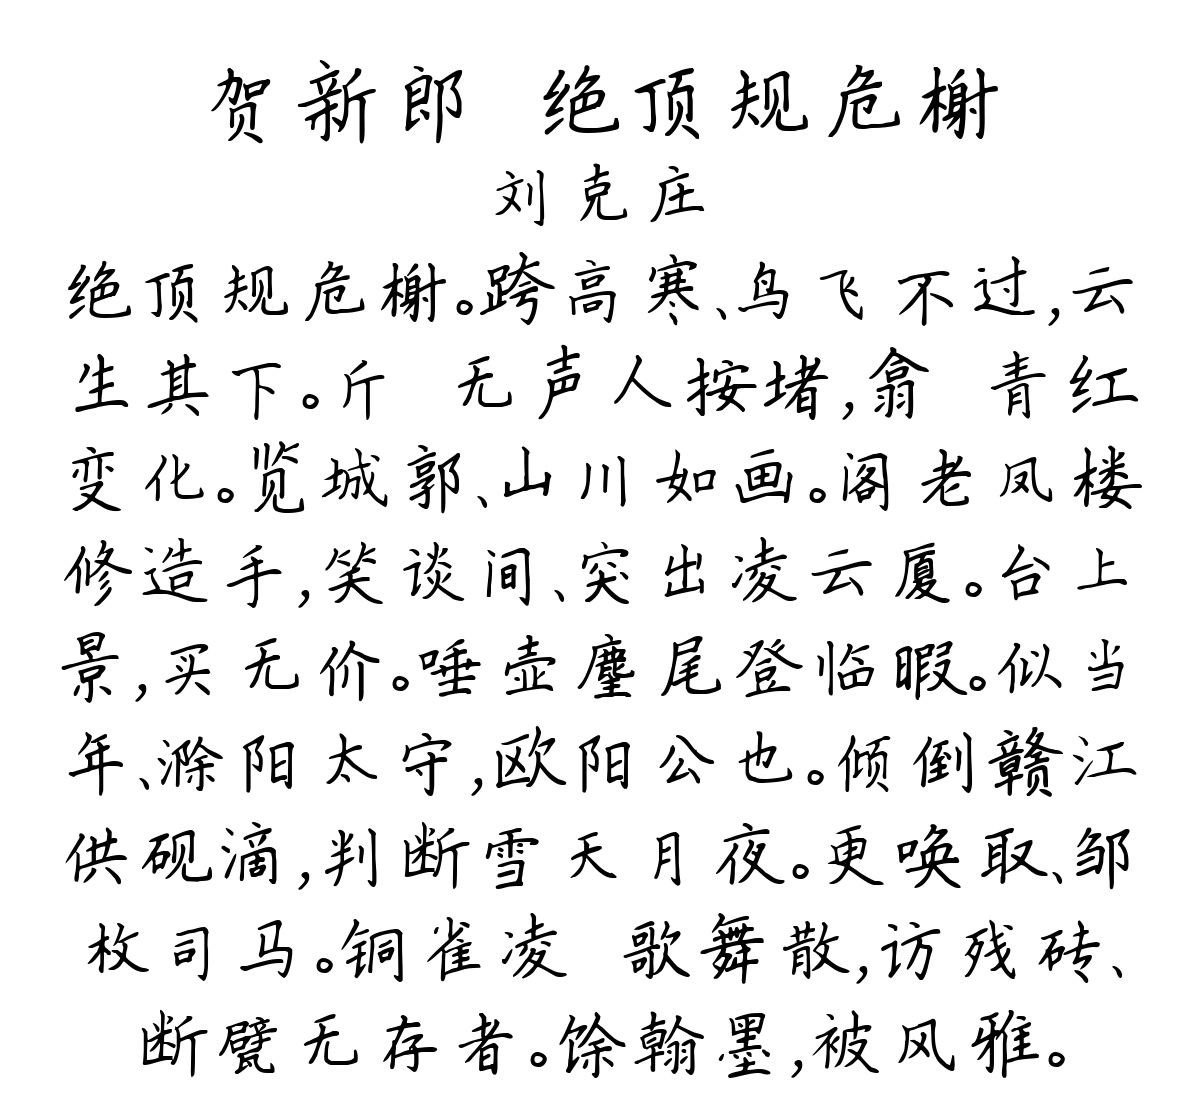 贺新郎 绝顶规危榭
刘克庄
绝顶规危榭。跨高寒、鸟飞不过,云
生其下。斤 无声人按堵,翕 青红
变化。览城郭、山川如画。阁老凤楼
修造手,笑谈间、突出凌云厦。台上
景,买无价。唾壶麈尾登临暇。似当
年、滁阳太守,欧阳公也。倾倒赣江
供砚滴,判断雪天月夜。更唤取、邹
枚司马。铜雀凌 歌舞散,访残砖、
断甓无存者。馀翰墨,被风雅。